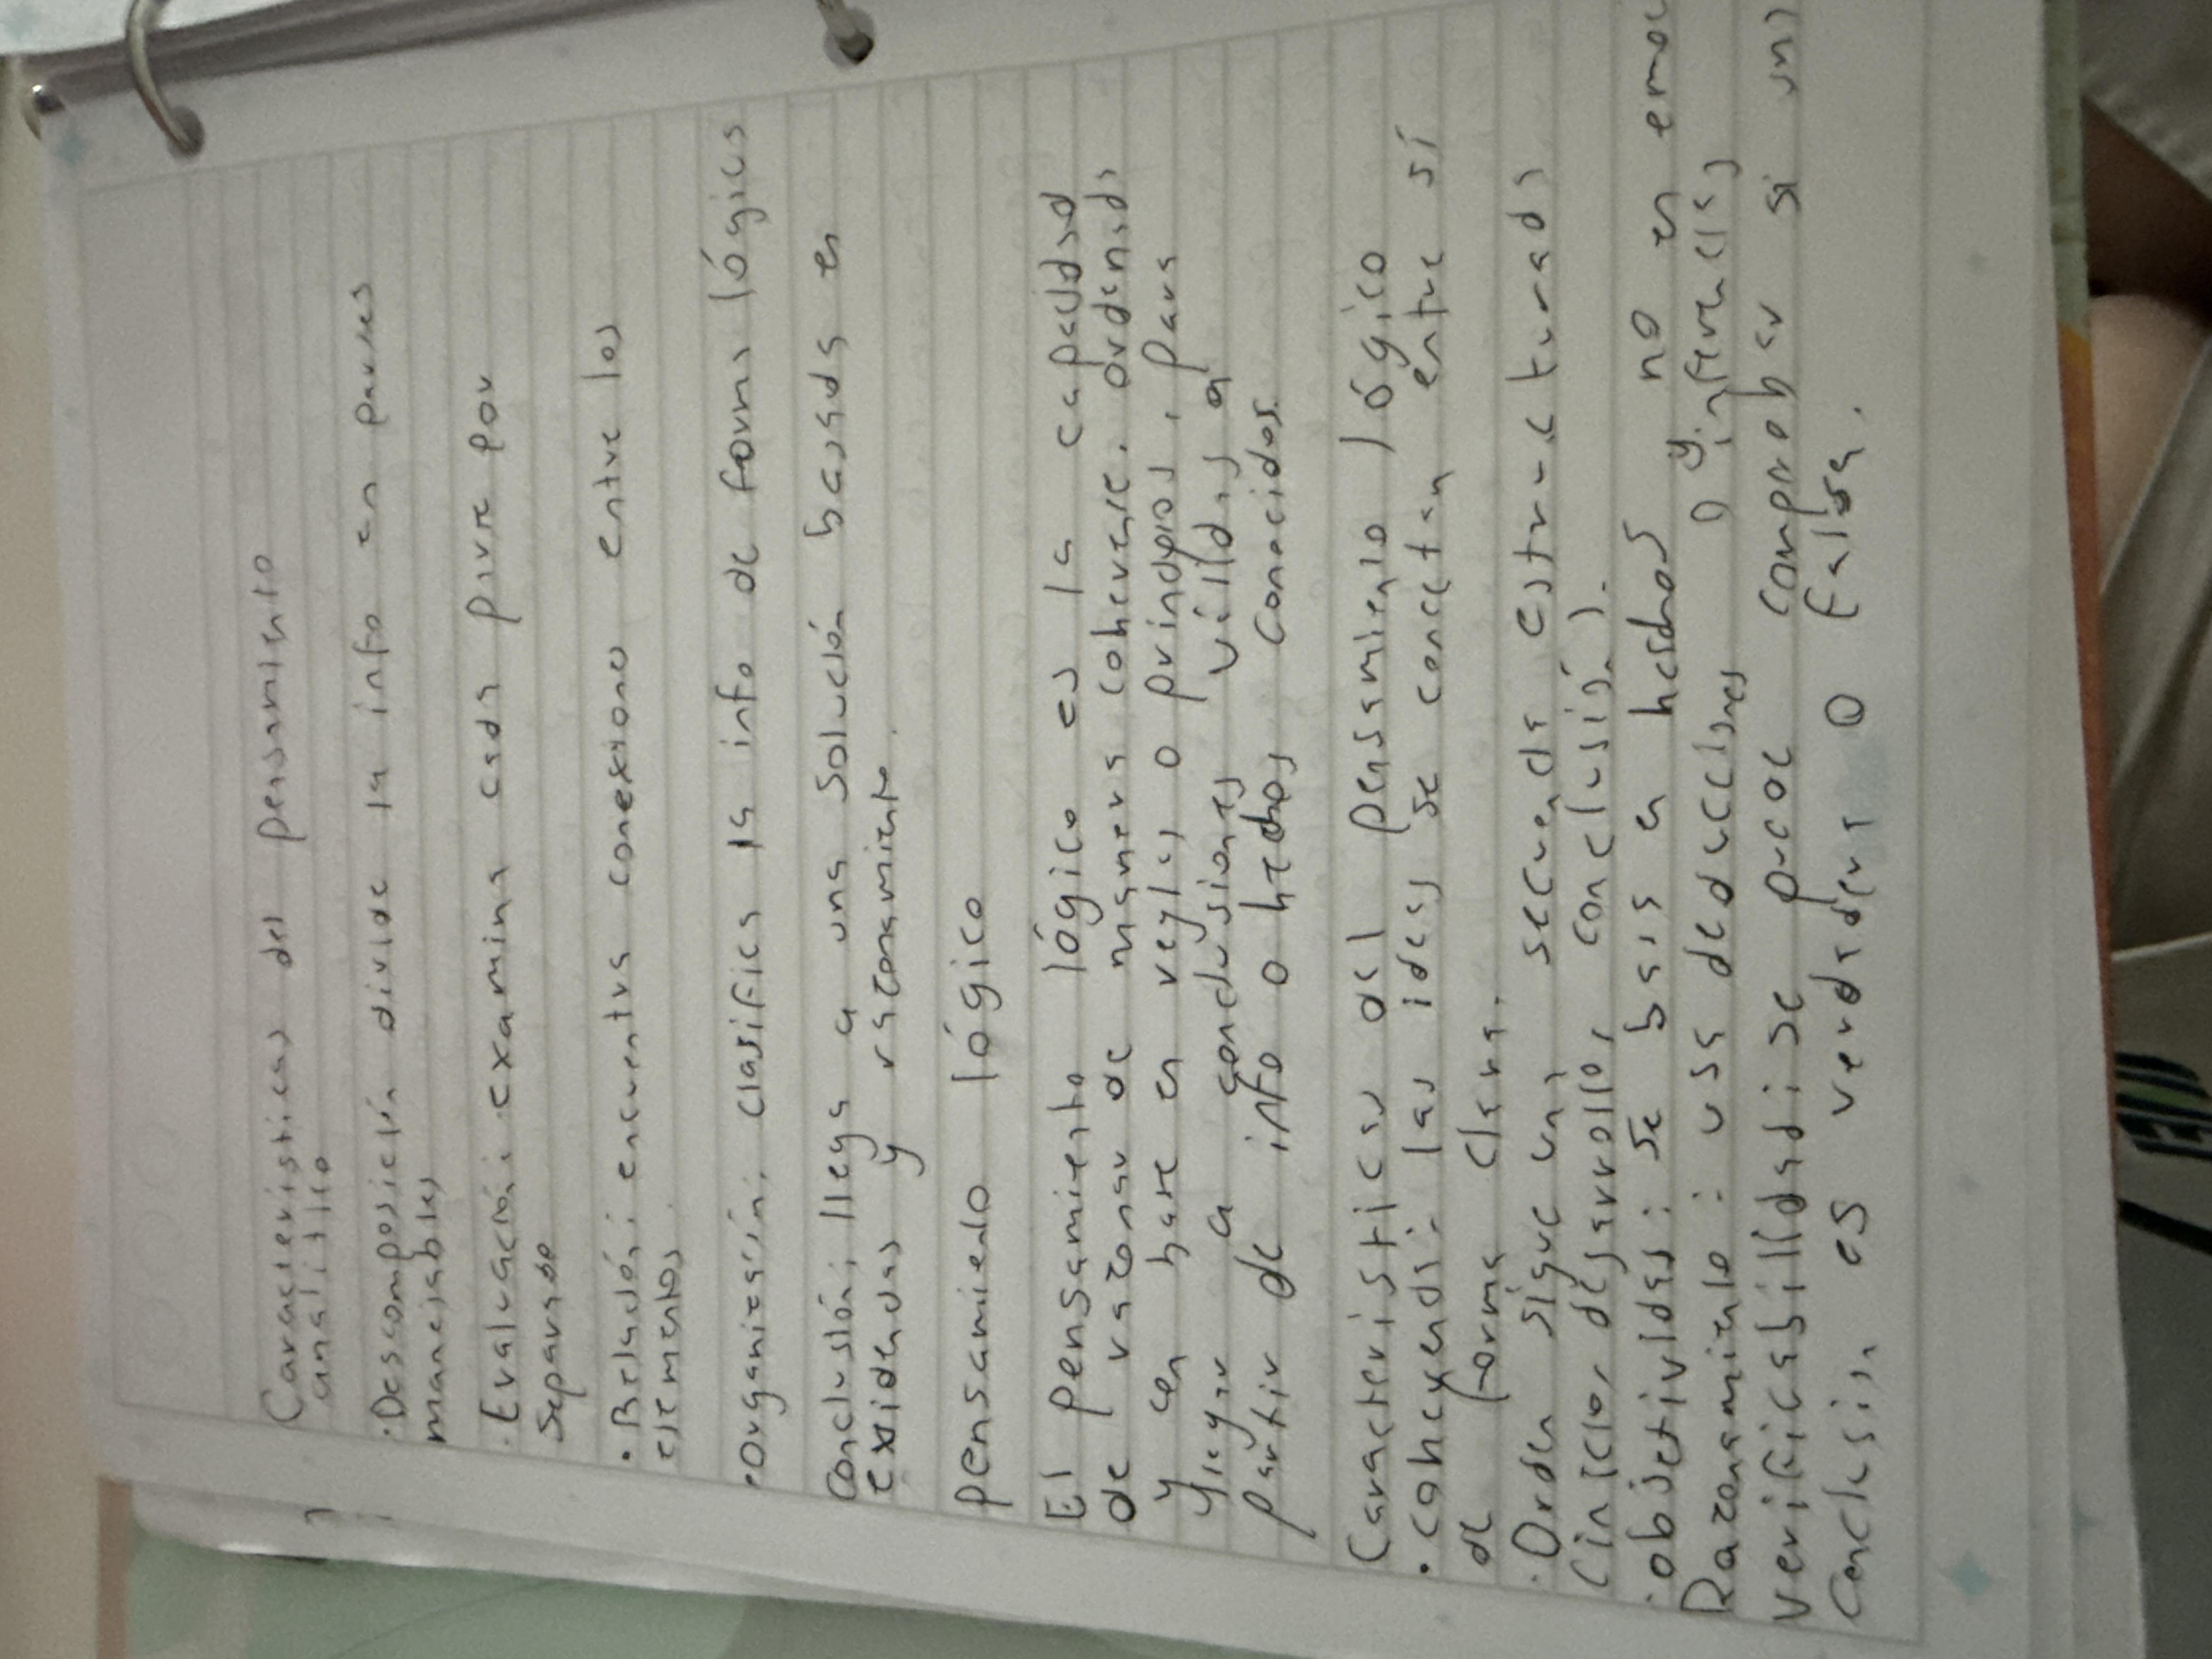 Características del pensamiento
analítico
·Descomposición divide la info en partes
manejables
·Evaluación: examina cada parte por
Separado
·Relación: encuentra conexiones entre los
elementos
·Organización: clasifica la info de forma lógica
Conclusión: llega a una solución basada en
evidencias y razonamiento.
pensamiento lógico
El pensamiento lógico es la capacidad
de razonar de manera coherente, ordenada
y en base en reglas o principios, para
llegar a conclusiones válidas a
partir de info o hechos conocidos.
Características del pensamiento lógico
·coherencia: las ideas se conectan entre sí
de forma clara.
·Orden sigue una secuencia estructurada
(inicio, desarrollo, conclusión).
·objetividad: se basa en hechos no en
Razonamiento: usa deducciones o y inferencias
verificabilidad: se puede comprobar si una
Conclusión es verdadera o falsa.